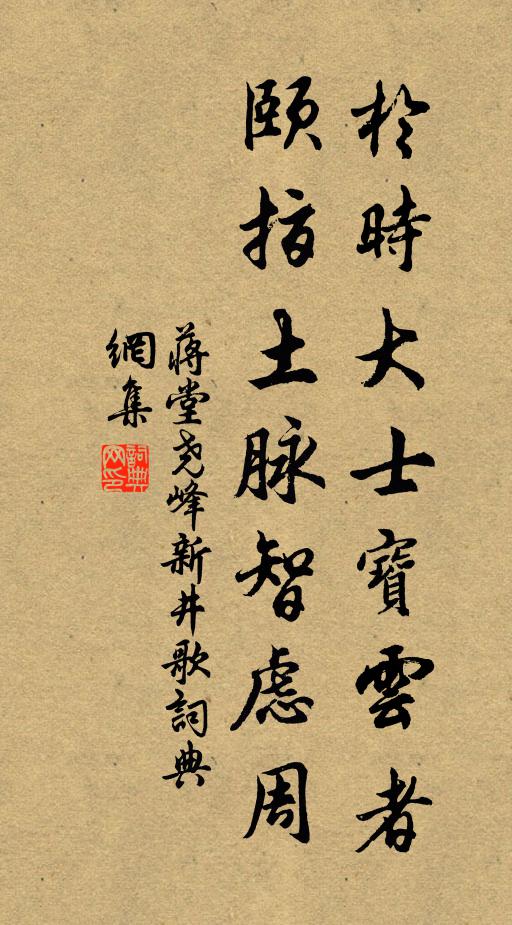 於時大士寶雲者
頤指土脉智慮周
蔣堂尧峰新井歌詞典
網集
詞典网印